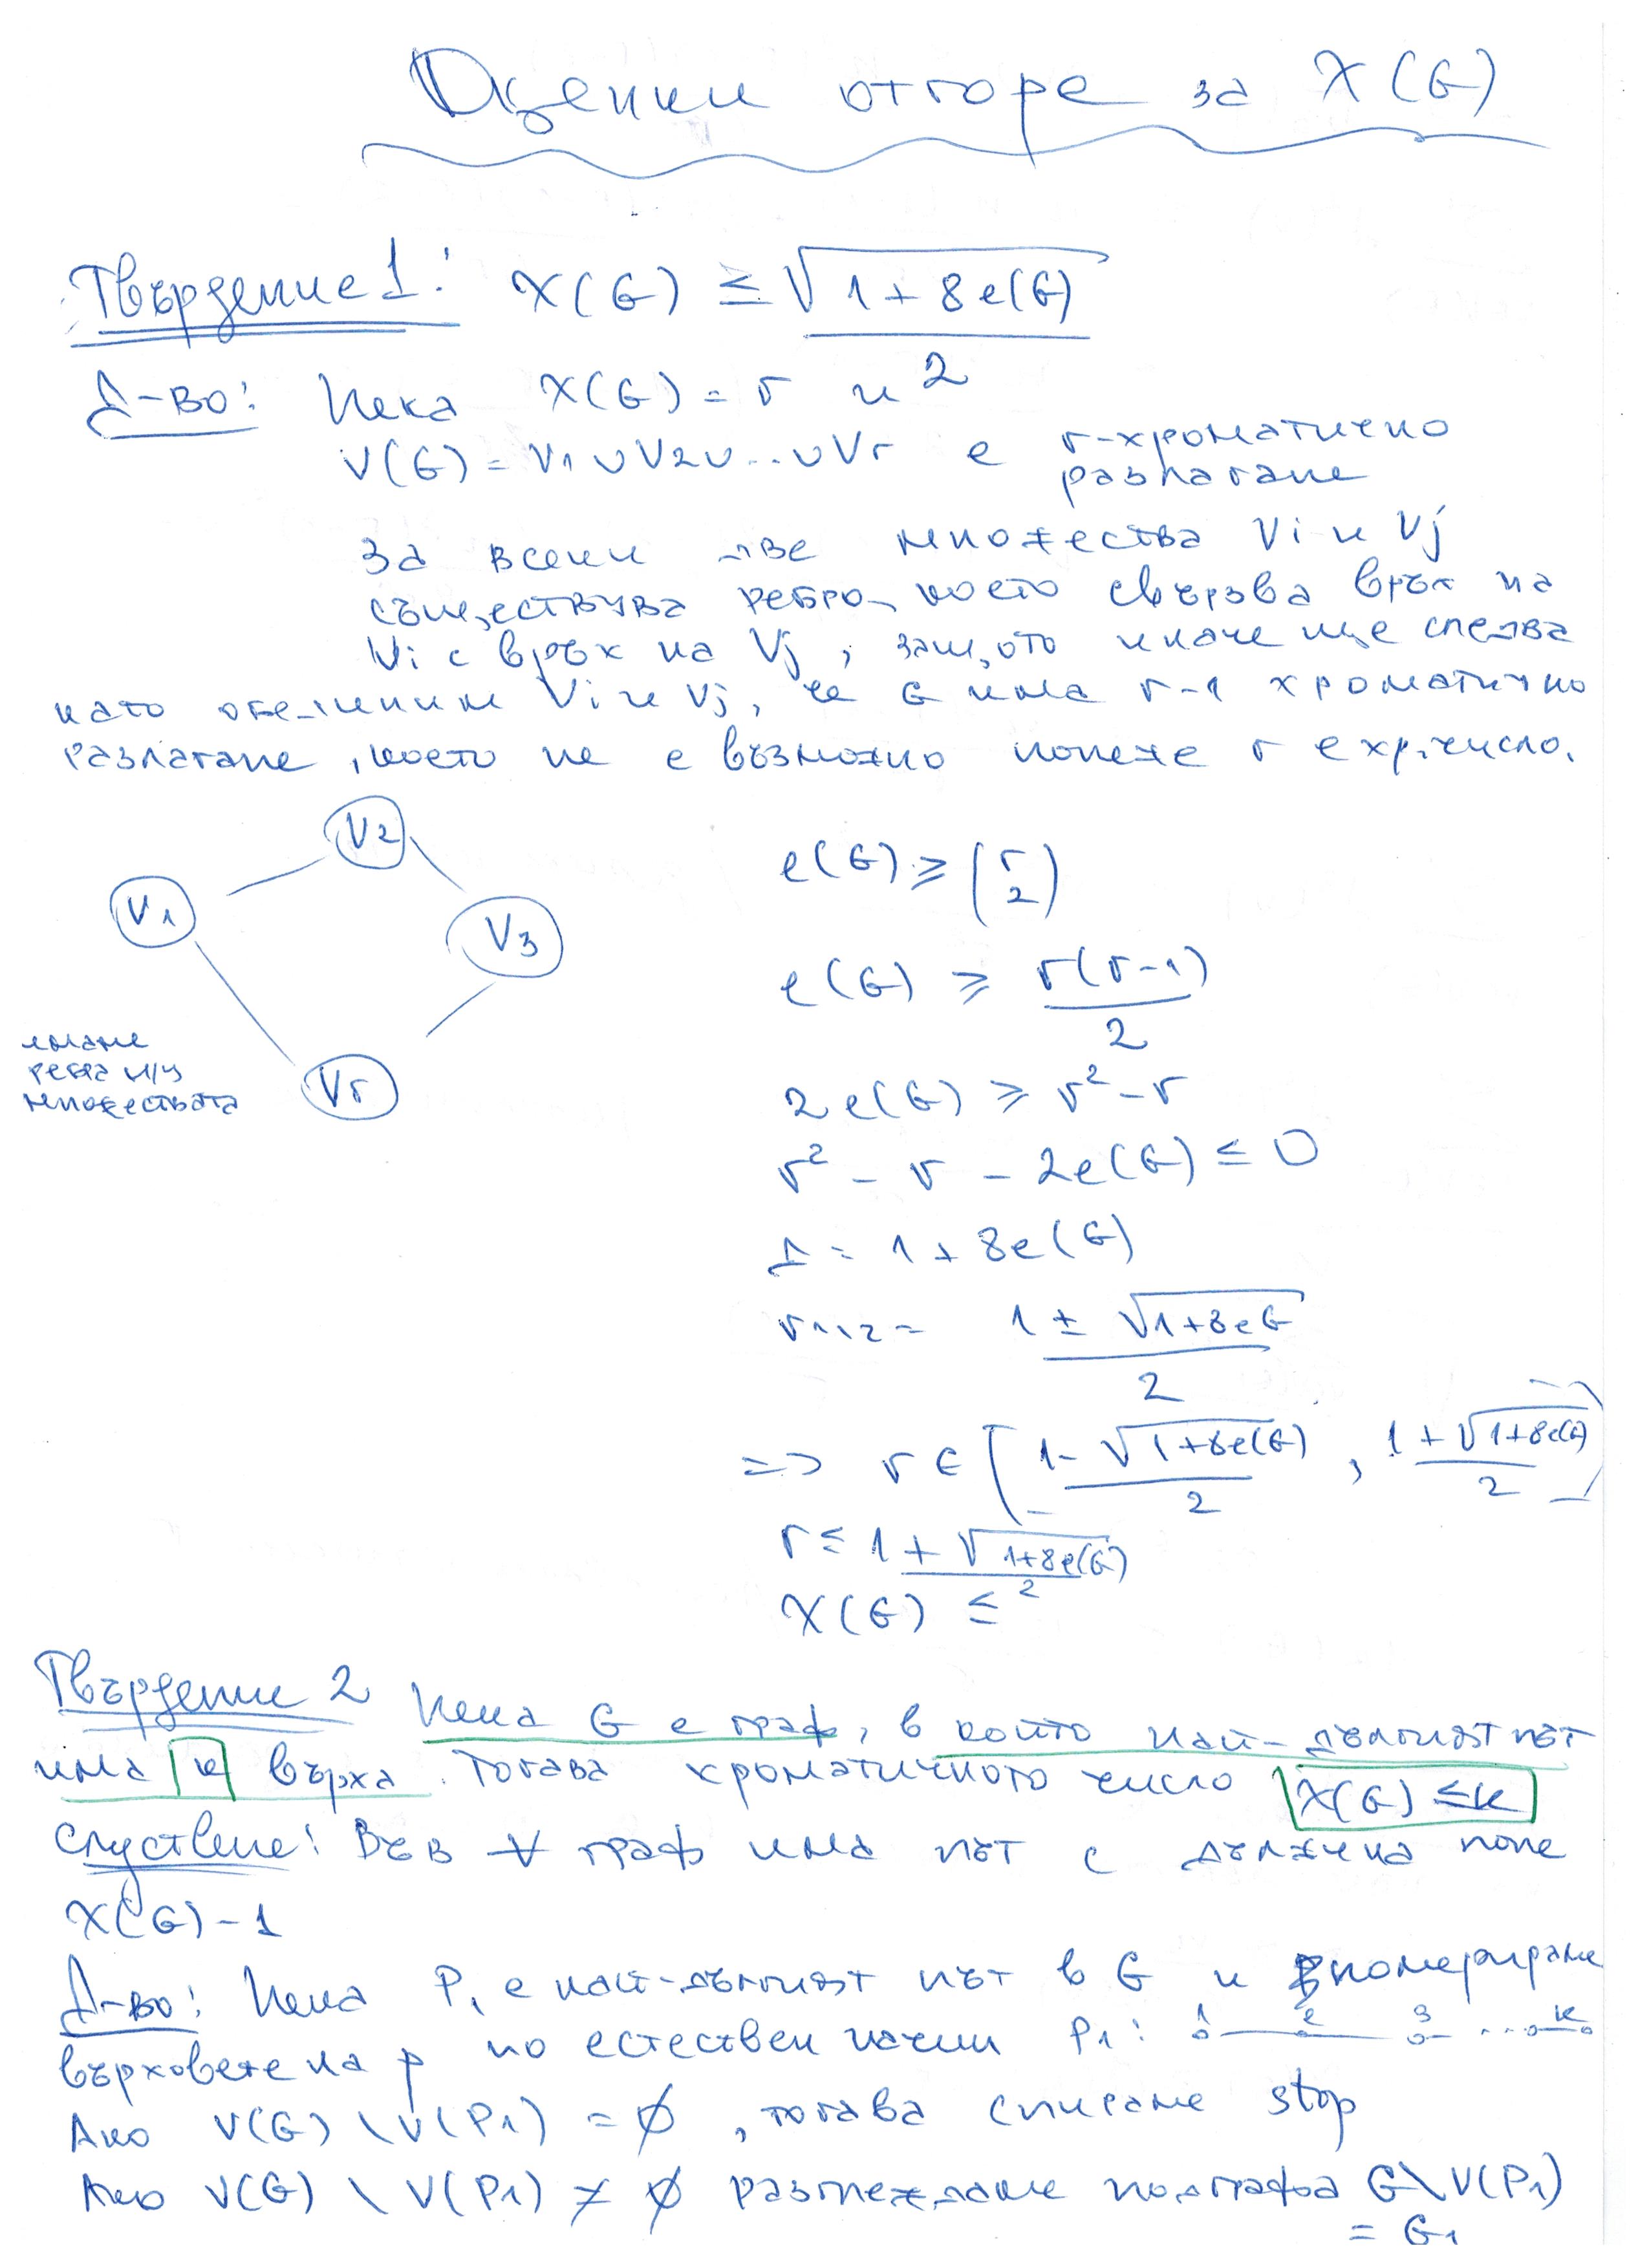 Оценки отгоре за χ(G)
Твърдение 1: χ(G) ≤ √(1+8e(G)) / 2
Д-во: Нека χ(G) = r и
V(G) = V1 ∪ V2 ∪ ... ∪ Vr е r-хроматично
разлагане
За всеки две множества Vi и Vj
съществува ребро, което свързва връх на
Vi с връх на Vj, защото иначе ще следва
като обединим Vi и Vj, че G има r-1 хроматично
разлагане, което не е възможно понеже r е хр. число.
V2
V1
V3
Vr
имаме
ребра м/у
множествата
e(G) ≥ (r 2)
e(G) ≥ r(r-1) / 2
2e(G) ≥ r² - r
r² - r - 2e(G) ≤ 0
Д = 1 + 8e(G)
r1,2 = 1 ± √(1+8eG) / 2
=> r ∈ [1 - √(1+8e(G)) / 2 , 1 + √(1+8e(G)) / 2]
r ≤ 1 + √(1+8e(G)) / 2
χ(G) ≤
Твърдение 2 Нека G е граф, в който най-дългият път
има k върха. Тогава хроматичното число χ(G) ≤ k
Следствие: Във ∀ граф има път с дължина поне
χ(G) - 1
Д-во: Нека P1 е най-дългият път в G и номерираме
върховете на p по естествен начин P1: 1 2 3 ... k
Ако V(G) \ V(P1) = ∅, тогава спираме stop
Ако V(G) \ V(P1) ≠ ∅ разглеждаме подграфа G\V(P1)
= G1